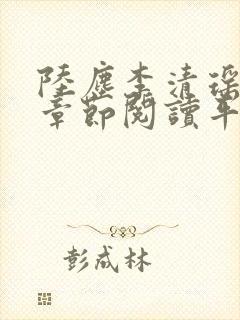 陸塵李清瑶
章節閱讀年
彭成林